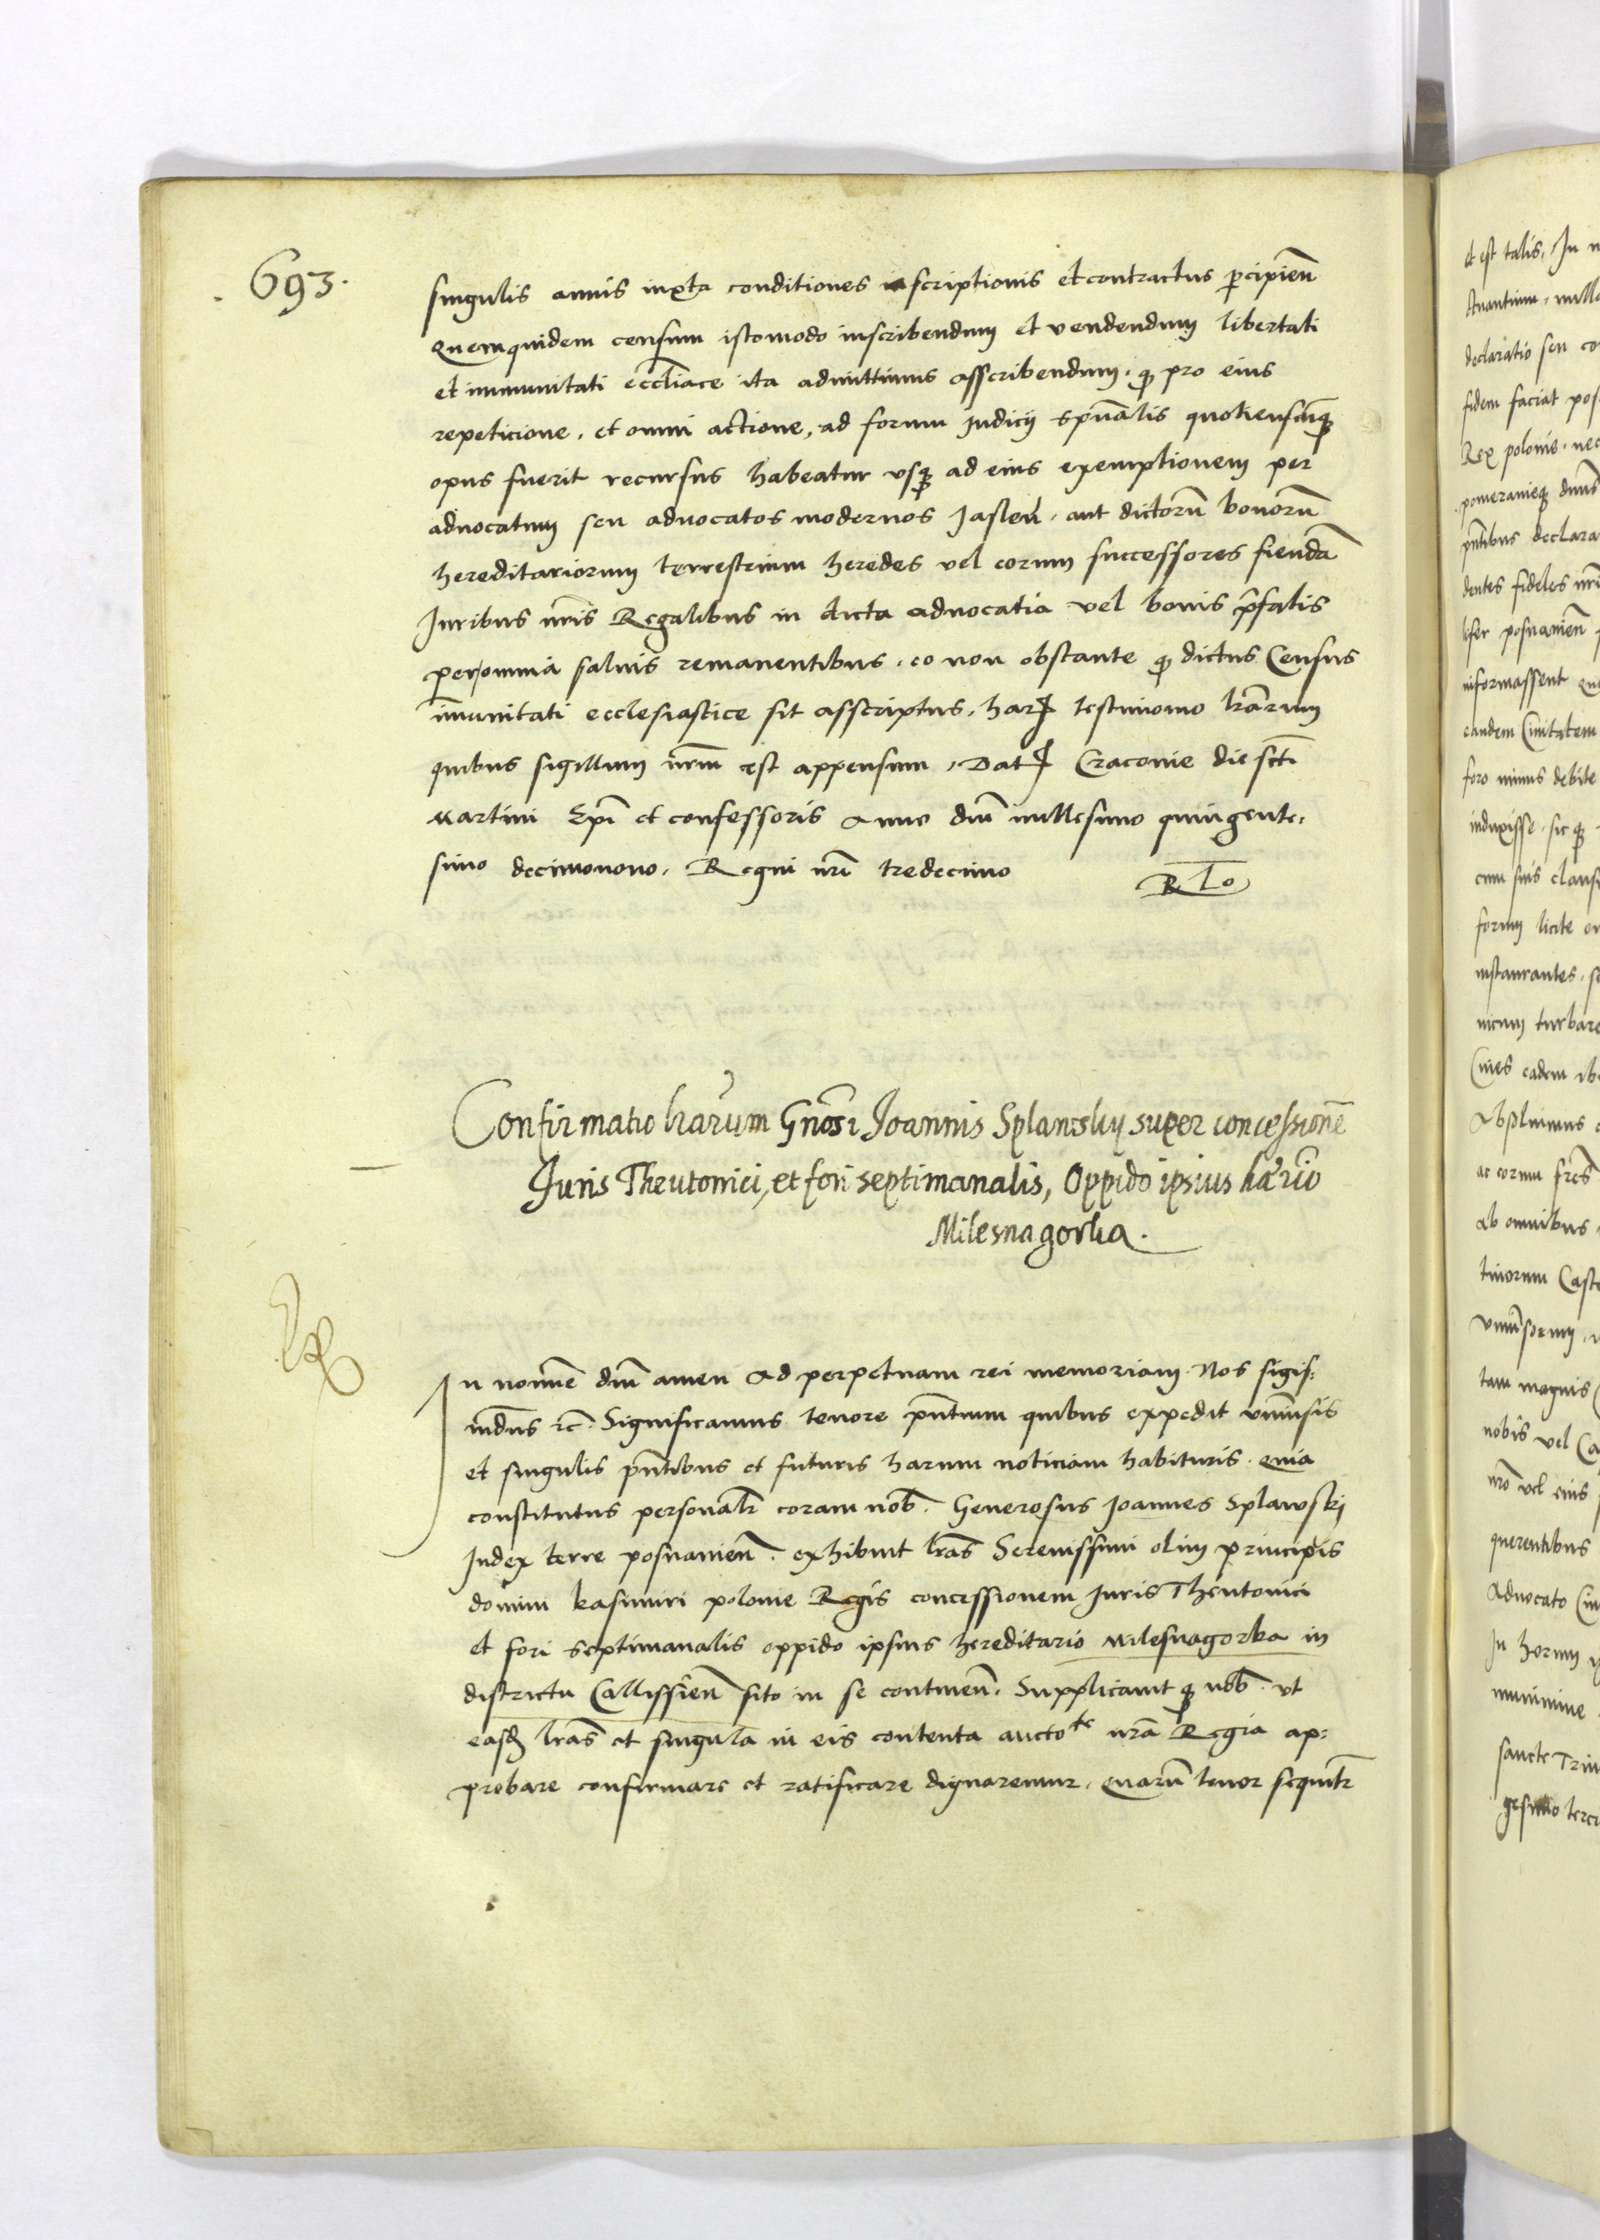 .693.
singulis annis iuxta conditiones inscriptionis et contractus p̱cipień
Quemquidem censum isto modo inscribendum et vendendum libertati
et immunitati eccl̄iace ita admittimus asscribendum. q̱ pro eius
repeticione, et omni actione, ad forum Judicij spūalis quotienscūq̱
opus fuerit recursus habeatur vsq̱ ad eius exemptionem per
aduocatum seu aduocatos modernos Jasleń. aut dictorū bonorū
hereditariorum terrestrium heredes vel eorum successores fiendā
Juribus nr̄is Regalibus in dicta aduocatia vel bonis p̄fatis
per omnia saluis remanentibus. eo non obstante q̱ dictus Census
īmunitati ecclesiastice sit asscriptus. harꝝ testimonio lr̄arum
quibus sigillum nr̄m est appensum. Datꝝ Cracouie die scti
Martini Ep̄i et confessoris Anno dn̄i millesimo quingente:
simo decimonono. Regni nr̄i tredecimo
R To
Confirmatio lr̄arum Gnōsi Joannis Splawskij super concessionē
Juris Theutonici, et fori septimanalis, Oppido ipsius hae̅rio
Milesnagorka.
In nomīe dn̄i amen Ad perpetuam rei memoriam. Nos sigis:
mdus rc̄. Significamus tenore pn̄tium quibus expedit vniūsis
et singulis pn̄tibus et futuris harum noticiam habituris. Quia
constitutus personalr̄ coram nob̄. Generosus Joannes Splawskj
Judex terre posnanień. exhibuit lr̄as Serenissimi olim principis
domini kasimiri polonie Regis concessionem Juris Theutonici
et fori septimanalis oppido ipsius hereditario Milesnagorka in
districtu Callissień sito in se contineń. Supplicauit q̱ nob̄. vt
easd̄ lr̄as et singula in eis contenta aucto^te nr̄a Regia ap:
probare confirmare et ratificare dignaremur. Quarū tenor sequitr̄
et est talis. In n
declaratio seu co
fidem faciat pos
Rex polonie. nec
pomeranieq̱ dn̄us
pn̄tibus declara
dentes fideles nr̄i
informassent
eandem Ciuitatem
foro minus debite
induxisse. sic q̱
cum suis clausu
forum licite
instaurantes. s
Ciues eadem
ab omnibus
tinorum Caste
tam magnis
nobis vel Ca
nr̄o vel eius
querentibus
Aduocato Ciu
In horum
munimine
sancte Trin
gesimo terci